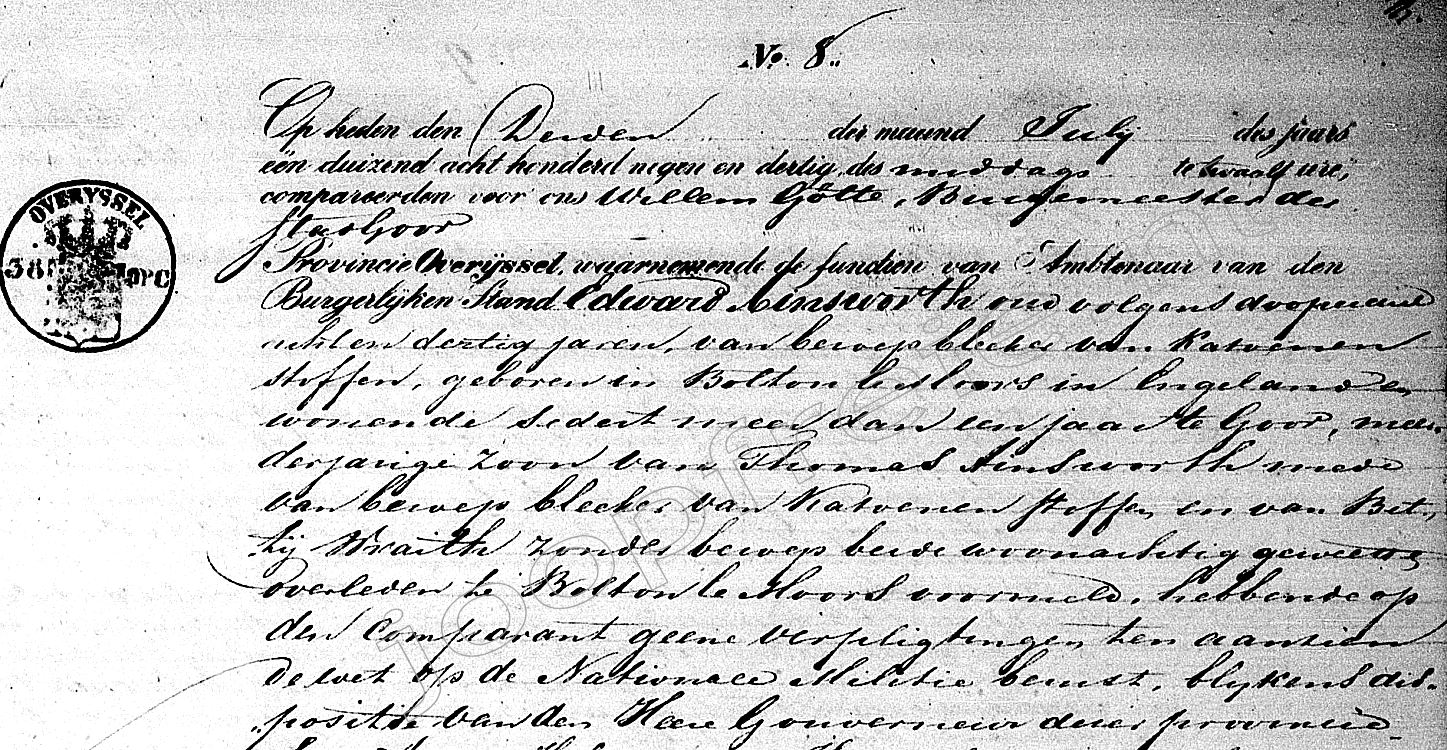 No. 8.
Op heden den Derden der maand July des jaars
één duizend acht honderd negen en dertig, des middags te twaalf ure,
compareerden voor ons Willem Götte, Burgemeester der
stad Goor
Provincie Overijssel, waarnemende de functien van Ambtenaar van den
Burgerlijken Stand Edward Ainsworth oud volgens doopcedul
acht en dertig jaren, van beroep bleeker van Katoenen
stoffen, geboren in Bolton le Moors in Engeland en
wonende sedert meer dan een jaar te Goor, meer-
derjarige zoon van Thomas Ainsworth mede
van beroep bleeker van Katoenen stoffen en van Bet,,
,,tij Wraith zonder beroep beide woonachtig geweest en
overleden te Bolton le Moors voormeld, hebbende op
den Comparant geene verpligtingen ten aanzien
de wet op de Nationale Militie berust, blykens dis-
,,positie van den Heere Gouverneur dezer provincie
OVERYSSEL
38
joopfreie